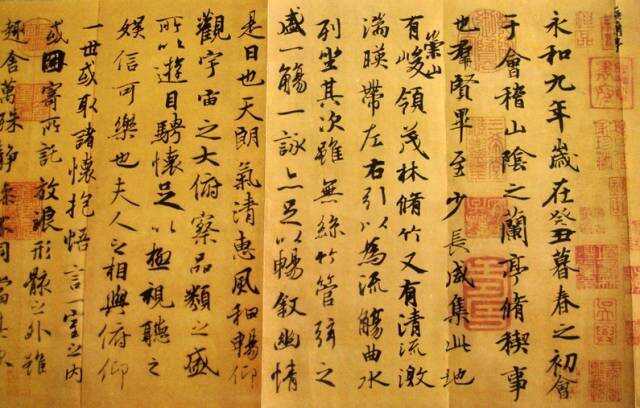 永和九年歲在癸丑暮春之初會
于會稽山陰之蘭亭脩禊事
也羣賢畢至少長咸集此地
有崇山峻領茂林脩竹又有清流激
湍暎帶左右引以為流觴曲水
列坐其次雖無絲竹管弦之
盛一觴一詠亦足以暢叙幽情
是日也天朗氣清惠風和暢仰
觀宇宙之大俯察品類之盛
所以遊目騁懷足以極視聽之
娛信可樂也夫人之相與俯仰
一世或取諸懷抱悟言一室之內
或因寄所託放浪形骸之外雖
趣舍萬殊靜躁不同當其